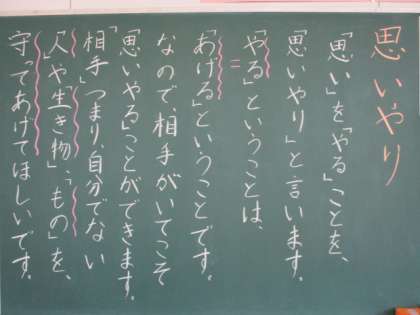 思いやり
「思い」を「やる」ことを、
「思いやり」と言います。
「やる」ということは、
「あげる」ということです。
なので、相手がいてこそ
「思いやる」ことができます。
「相手」つまり、自分でない
「人」や「生き物」、「もの」を、
守ってあげてほしいです。